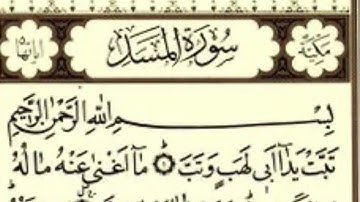 مكية سورة المسد آياتها ٥
بِسْمِ اللَّهِ الرَّحْمَٰنِ الرَّحِيمِ
تَبَّتْ يَدَا أَبِي لَهَبٍ وَتَبَّ ۝ مَا أَغْنَىٰ عَنْهُ مَالُهُ